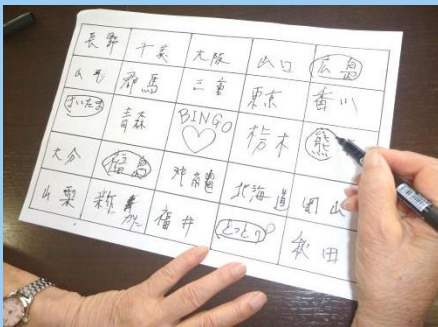 長野 千葉 大阪 山口 広島
山形 群馬 三重 東京 香川
さいたま 青森 BINGO 栃木 熊
大分 福島 沖縄 北海道 岡山
山梨 福井 とっとり 秋田